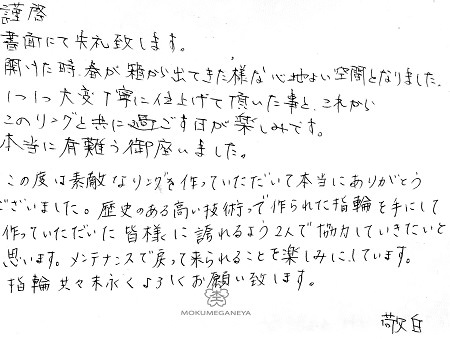 謹啓
書面にて失礼致します。
開けた時、春が箱から出てきた様な心地よい空間となりました。
1つ1つ大変丁寧に仕上げて頂いた事と、これから
このリングと共に過ごす日が楽しみです。
本当に有難う御座いました。
この度は素敵なリングを作っていただいて本当にありがとう
ございました。歴史のある高い技術って作られた指輪を手にして
作っていただいた皆様に誇れるよう2人で協力していきたいと
思います。メンテナンスで戻って来られることを楽しみにしています。
指輪共々末永くよろしくお願い致します。
MOKUMEGANEYA
敬白